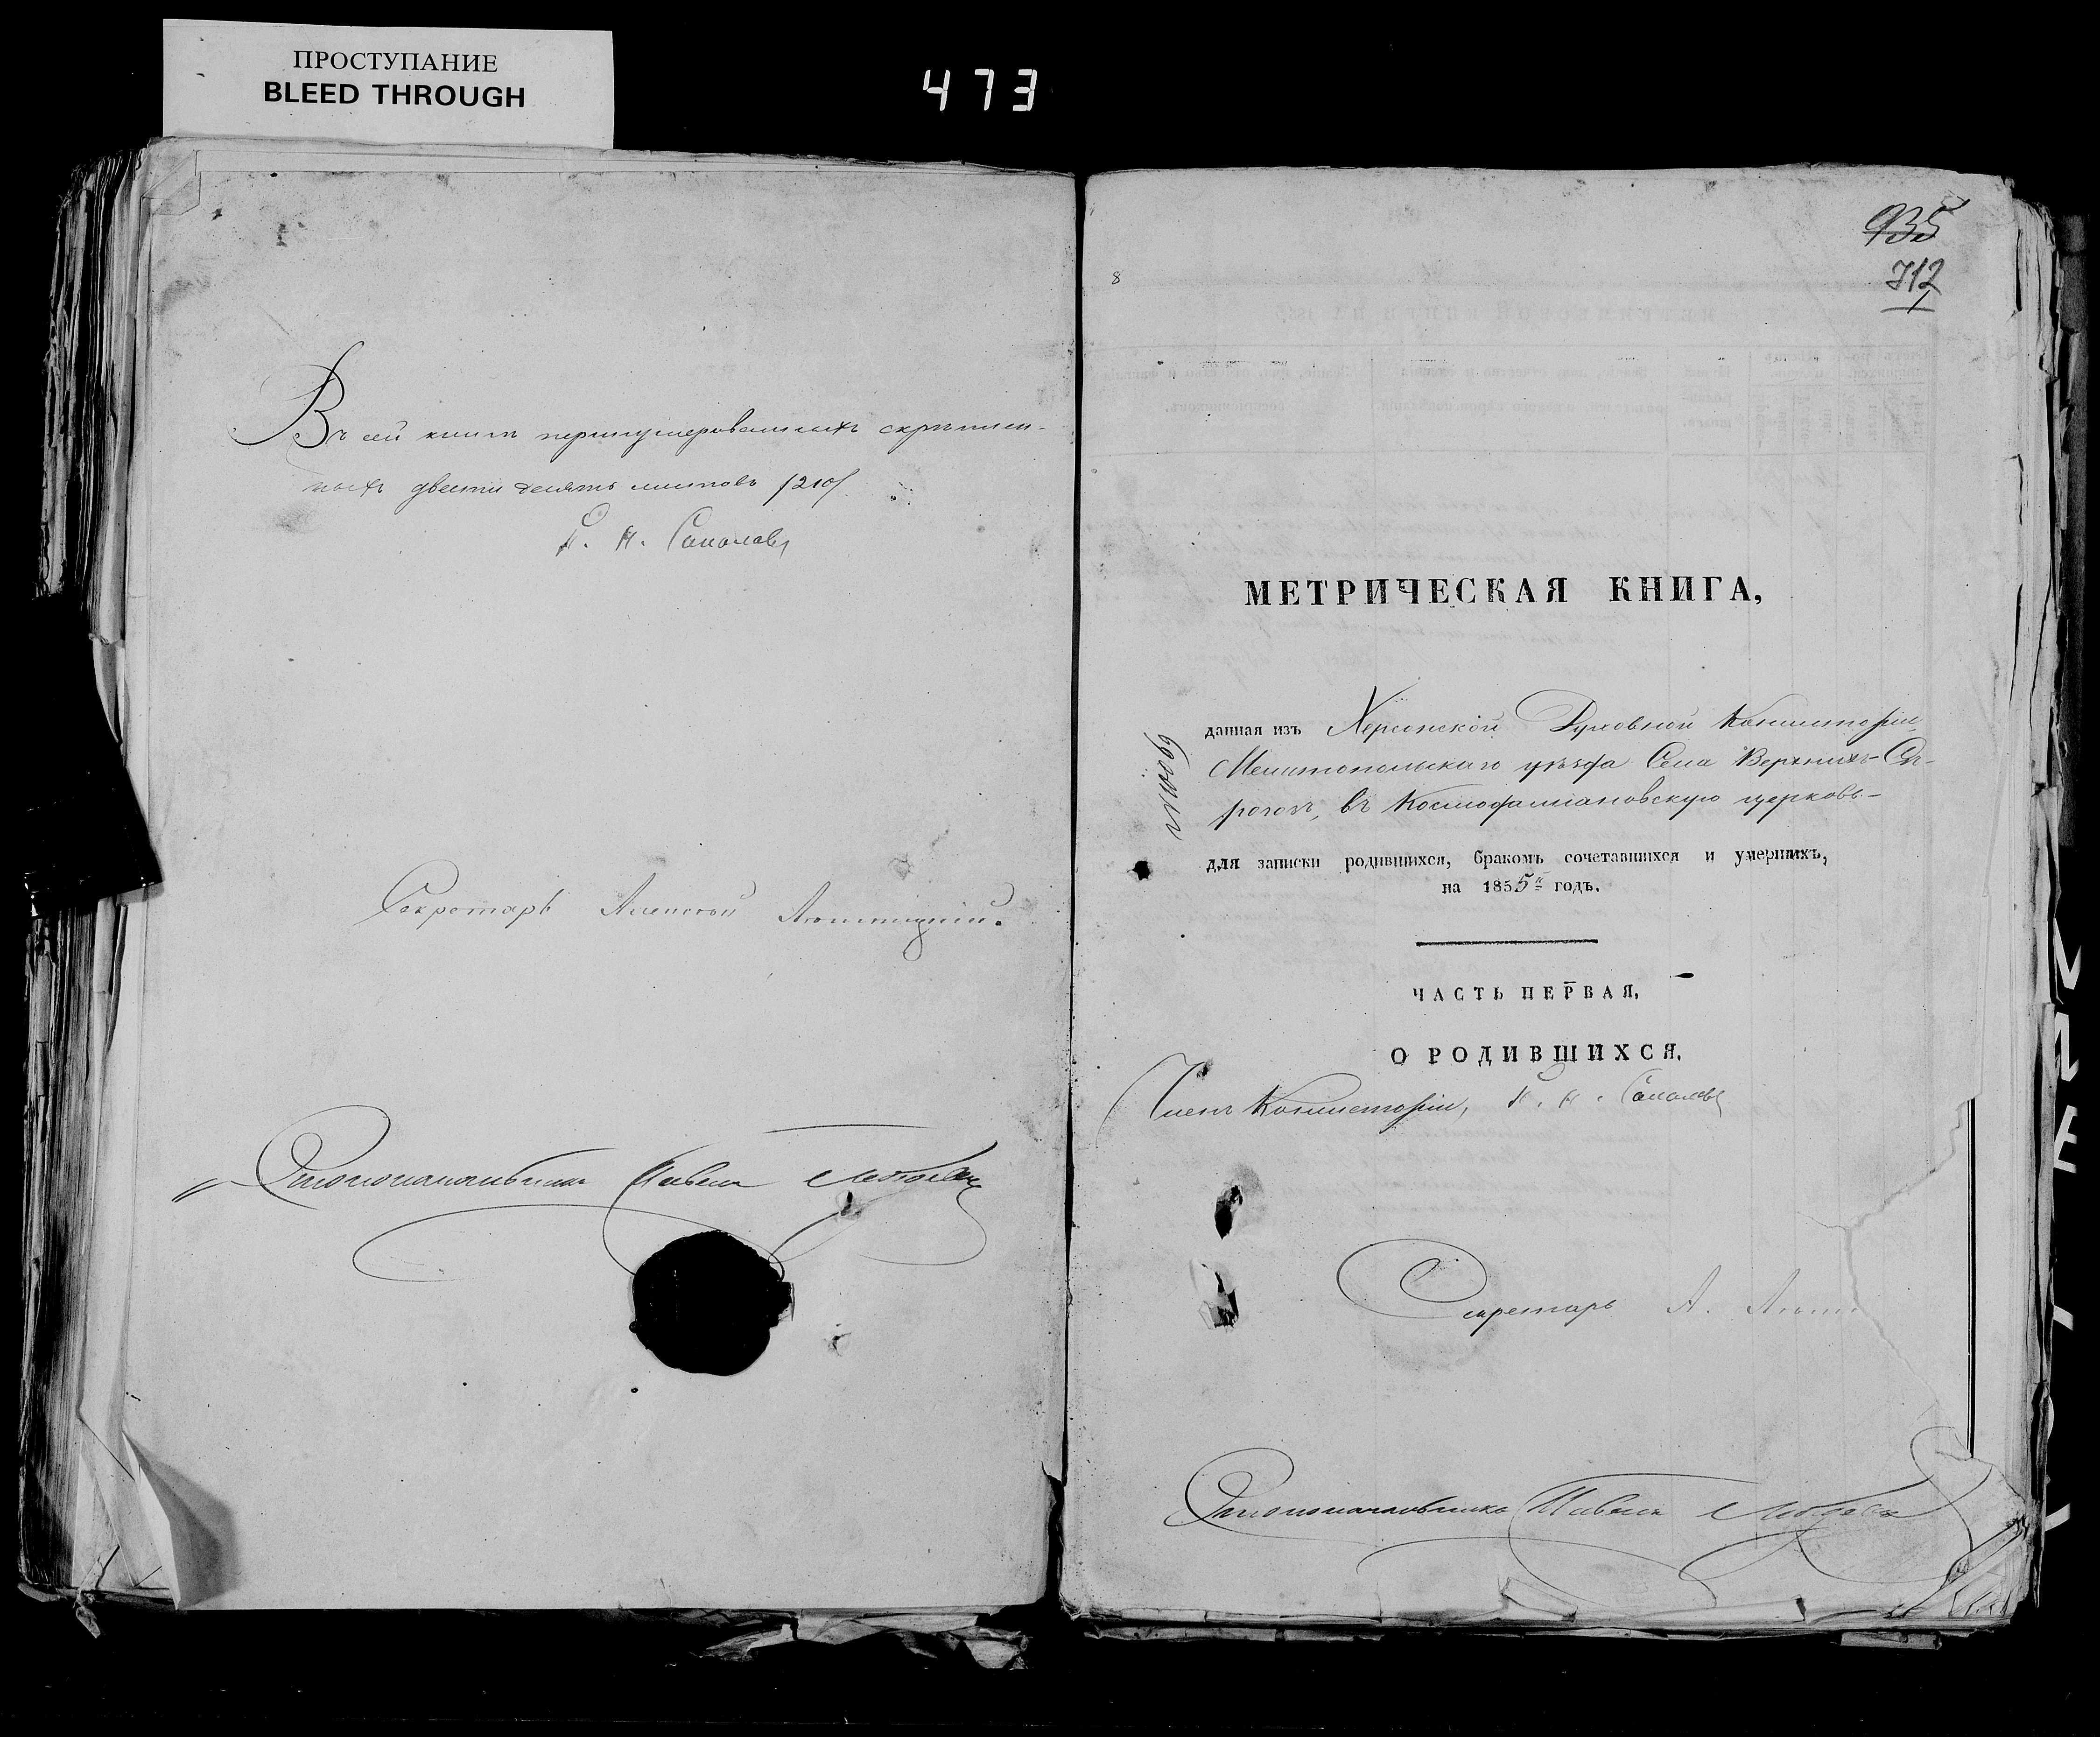 ПРОСТУПАНИЕ
BLEED THROUGH
473
Въ сей книгѣ перенумерованныхъ скрѣплен-
ныхъ двести десять листовъ /210/
С. Н. Соколовъ
Секретарь Алексей
Столоначальникъ Павелъ
935
712
8
МЕТРИЧЕСКАЯ КНИГА,
данная изъ Херсонской Духовной Консисторіи,
Мелитопольскаго уѣзда Села Верхнихъ-Сѣ-
рогозъ, въ Космодаміановскую церковь-
для записки родившихся, бракомъ сочетавшихся и умершихъ,
на 1855й годъ.
ЧАСТЬ ПЕРВАЯ,
О РОДИВШИХСЯ.
Членъ Консисторіи, Соколовъ
Секретарь А.
Столоначальникъ Павелъ